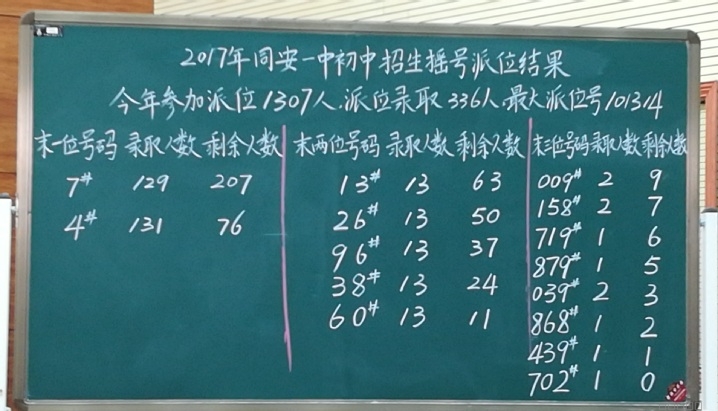 2017年同安一中初中招生摇号派位结果
今年参加派位1307人.派位录取336人.最大派位号101314
末一位号码 录取人数 剩余人数
7# 129 207
4# 131 76
末两位号码 录取人数 剩余人数
13# 13 63
26# 13 50
96# 13 37
38# 13 24
60# 13 11
末三位号码 录取人数 剩余人数
009# 2 9
158# 2 7
719# 1 6
879# 1 5
039# 2 3
868# 1 2
439# 1 1
702# 1 0